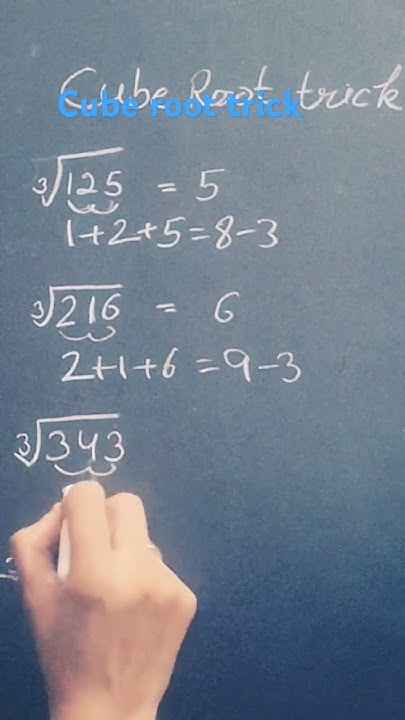 Cube Root trick
Cube root trick
∛125 = 5
1+2+5=8-3
∛216 = 6
2+1+6=9-3
∛343